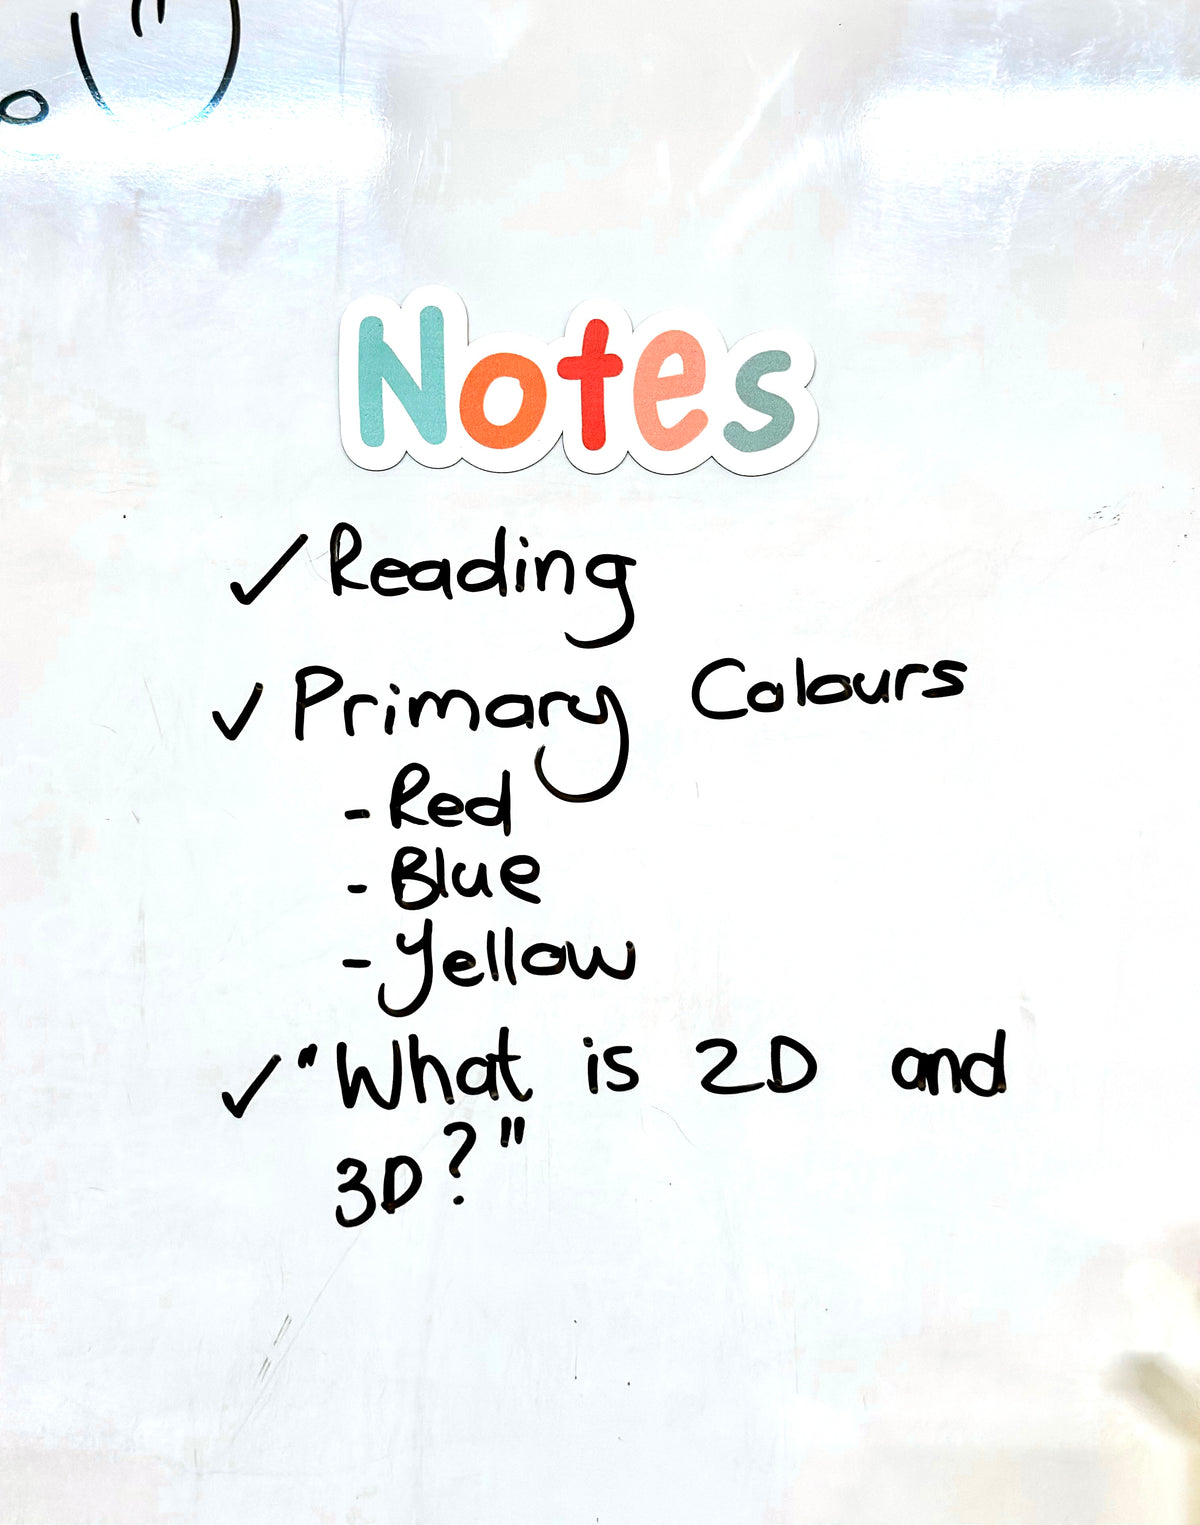 Notes
✓ Reading
✓ Primary Colours
- Red
- Blue
- Yellow
✓ "What is 2D and
3D?"